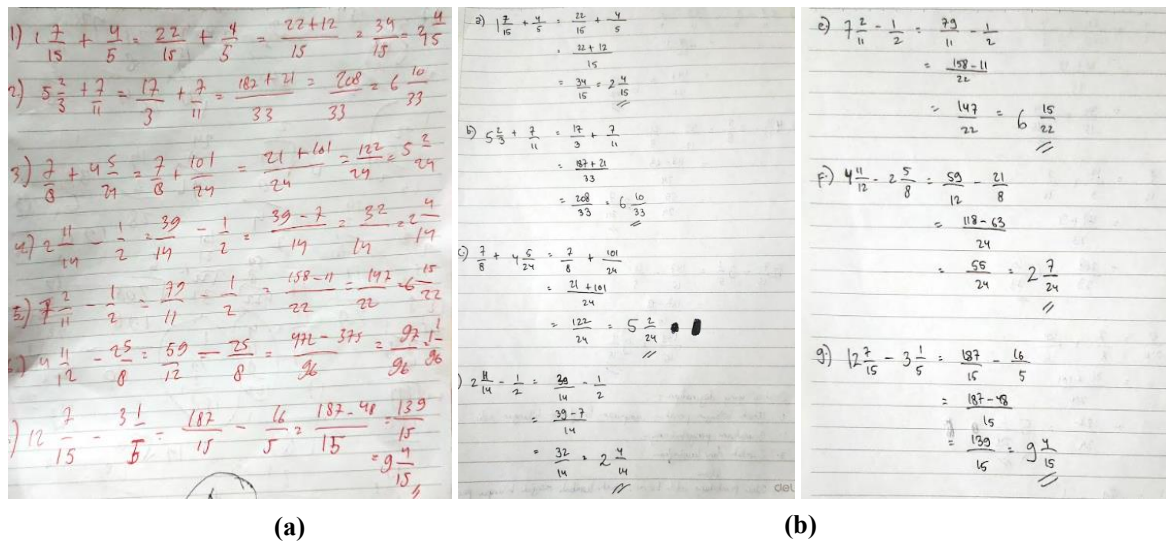 1) 1 7/15 + 4/5 = 22/15 + 4/5 = (22+12)/15 = 34/15 = 2 4/15
2) 5 2/3 + 7/11 = 17/3 + 7/11 = (187+21)/33 = 208/33 = 6 10/33
3) 7/8 + 4 5/24 = 7/8 + 101/24 = (21+101)/24 = 122/24 = 5 2/24
4) 2 11/14 - 1/2 = 39/14 - 1/2 = (39-7)/14 = 32/14 = 2 4/14
5) 7 2/11 - 1/2 = 79/11 - 1/2 = (158-11)/22 = 147/22 = 6 15/22
) 4 11/12 - 25/8 = 59/12 - 25/8 = (472-375)/96 = 97/96 = 1 1/96
) 12 7/15 - 3 1/5 = 187/15 - 16/5 = (187-48)/15 = 139/15
= 9 4/15
(a)
a) 1 7/15 + 4/5 = 22/15 + 4/5
= (22+12)/15
= 34/15 = 2 4/15
b) 5 2/3 + 7/11 = 17/3 + 7/11
= (187+21)/33
= 208/33 = 6 10/33
c) 7/8 + 4 5/24 = 7/8 + 101/24
= (21+101)/24
= 122/24 = 5 2/24
) 2 11/14 - 1/2 = 39/14 - 1/2
= (39-7)/14
= 32/14 = 2 4/14
e) 7 2/11 - 1/2 = 79/11 - 1/2
= (158-11)/22
= 147/22 = 6 15/22
f) 4 11/12 - 2 5/8 = 59/12 - 21/8
= (118-63)/24
= 55/24 = 2 7/24
g) 12 7/15 - 3 1/5 = 187/15 - 16/5
= (187-48)/15
= 139/15 = 9 4/15
(b)